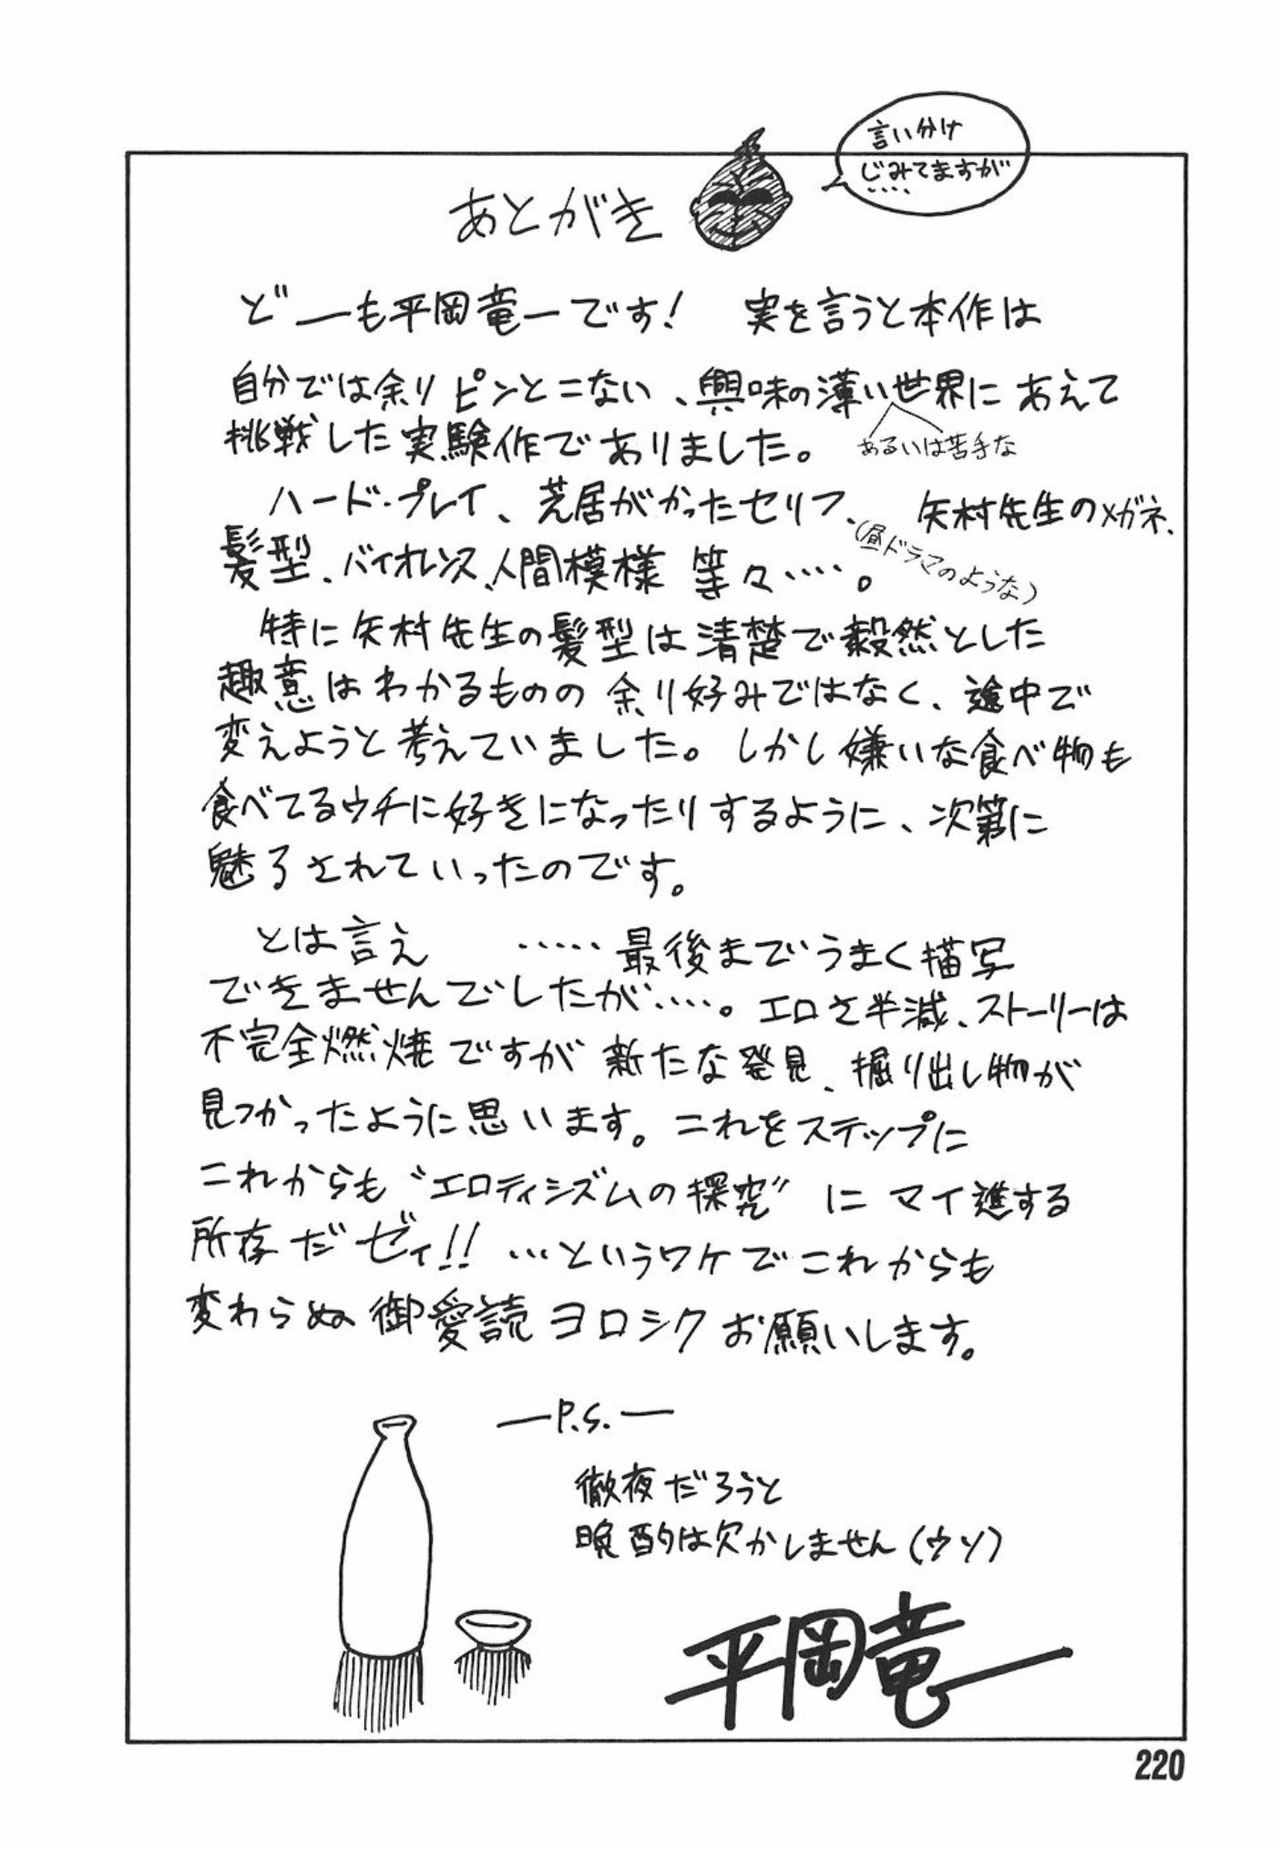 言い分け
じみてますが
‥‥
あとがき
どーも平岡竜一です! 実を言うと本作は
自分では余りピンとこない、興味の薄い世界にあえて
あるいは苦手な
挑戦した実験作でありました。
ハード・プレイ、芝居がかったセリフ、矢村先生のメガネ、
髪型、バイオレンス、人間模様 等々‥‥。
(昼ドラマのような)
特に矢村先生の髪型は清楚で毅然とした
趣意はわかるものの余り好みではなく、途中で
変えようと考えていました。しかし嫌いな食べ物も
食べてるウチに好きになったりするように、次第に
魅るされていったのです。
とは言え ‥‥‥最後までうまく描写
できませんでしたが‥‥。エロさ半減、ストーリーは
不完全燃焼ですが新たな発見、掘り出し物が
見つかったように思います。これをステップに
これからも“エロティシズムの探究”にマイ進する
所存だゼィ!! …というワケでこれからも
変わらぬ御愛読ヨロシクお願いします。
―P.S.―
徹夜だろうと
晩酌は欠かしません(ウソ)
平岡竜一
220